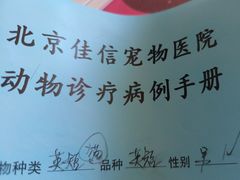 北京佳信宠物医院
动物诊疗病例手册
物种类 英短 猫 品种 英短 性别